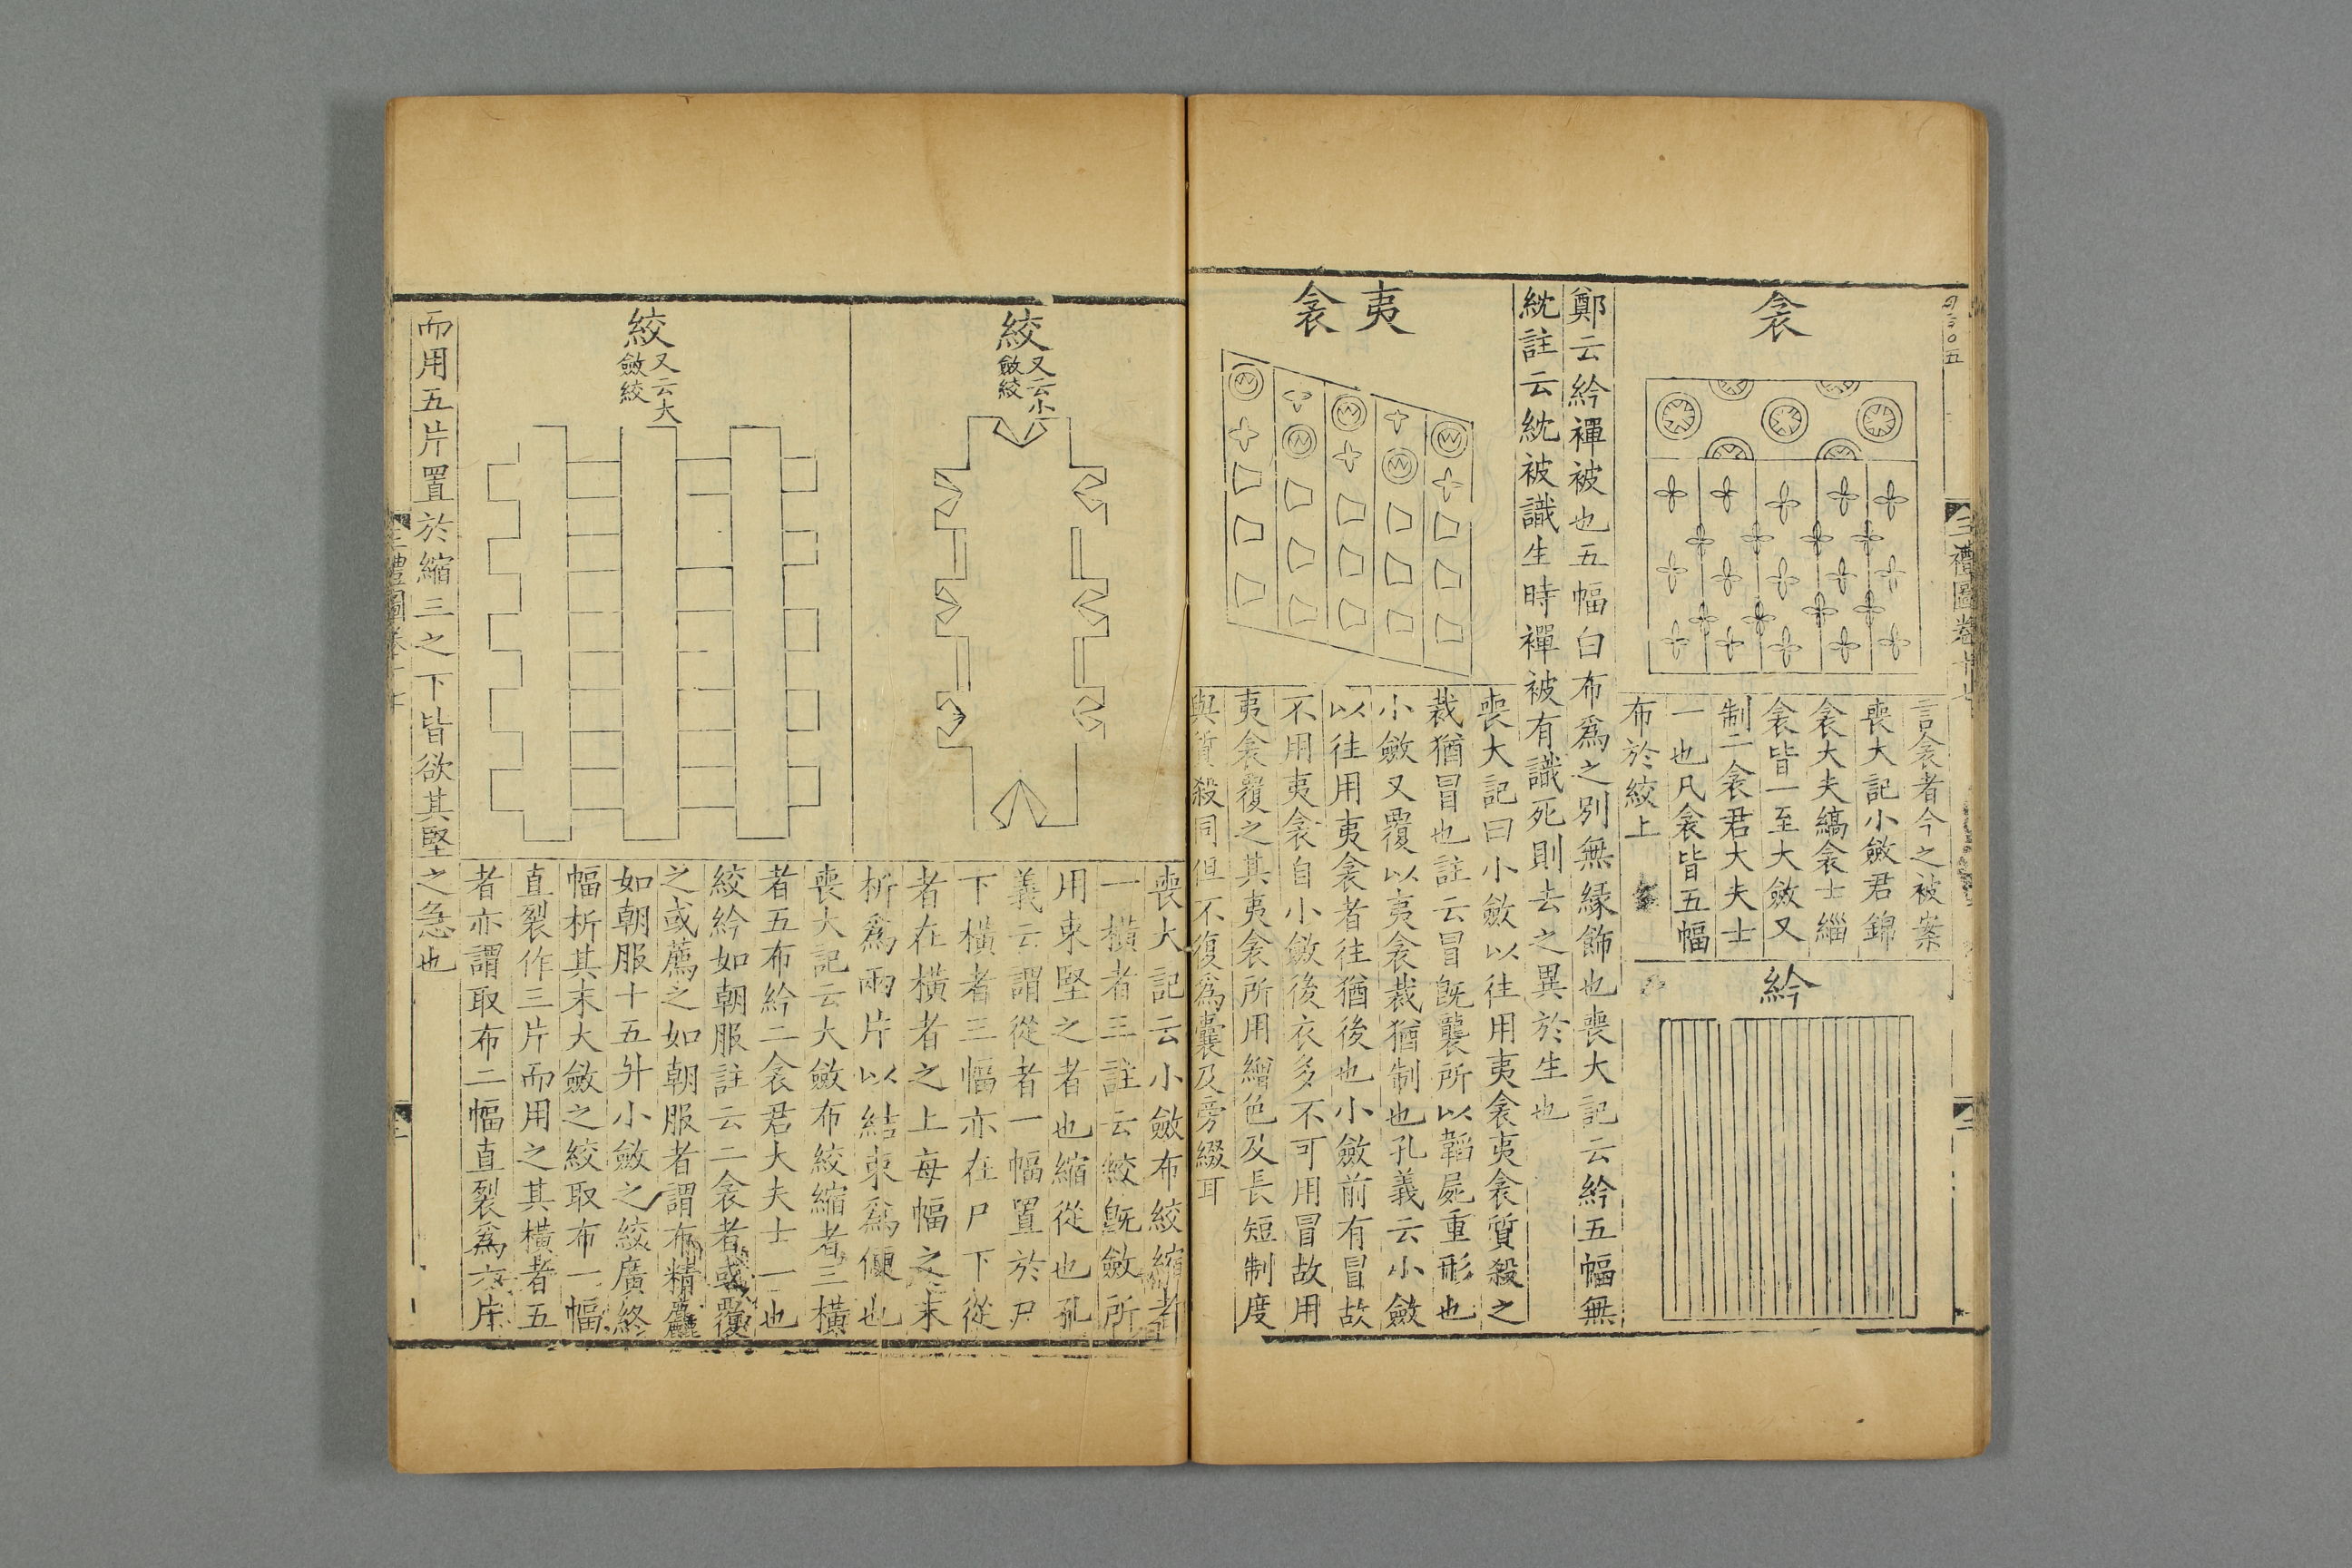 三禮圖卷十七
衾
言衾者今之被案
喪大記小斂君錦
衾大夫縞衾士緇
衾皆一至大斂又
制二衾君大夫士
一也凡衾皆五幅
布於絞上
紟
鄭云紟襌被也五幅白布爲之別無緣飾也喪大記云紟五幅無
紞註云紞被識生時襌被有識死則去之異於生也
夷衾
喪大記曰小斂以往用夷衾夷衾質殺之
裁猶冒也註云冒旣襲所以韜屍重形也
小斂又覆以夷衾裁猶制也孔義云小斂
以往用夷衾者往猶後也小斂前有冒故
不用夷衾自小斂後衣多不可用冒故用
夷衾覆之其夷衾所用繒色及長短制度
與質殺同但不復爲囊及旁綴耳
絞又云小
斂絞
喪大記云小斂布絞縮者
一橫者三註云絞旣斂所
用束堅之者也縮從也孔
義云謂從者一幅置於尸
下橫者三幅亦在尸下從
者在橫者之上每幅之末
析爲兩片以結束爲便也
絞又云大
斂絞
喪大記云大斂布絞縮者三橫
者五布紟二衾君大夫士一也
絞紟如朝服註云二衾者或覆
之或薦之如朝服者謂布精麤
如朝服十五升小斂之絞廣終
幅析其末大斂之絞取布一幅
直裂作三片而用之其橫者五
者亦謂取布二幅直裂爲六片
而用五片置於縮三之下皆欲其堅之急也
三禮圖卷十七